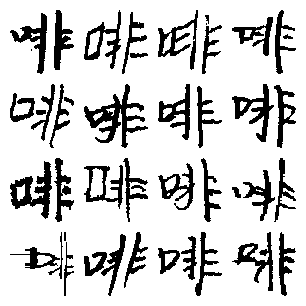 啡啡啡啡
啡啡啡啡
啡啡啡啡
啡啡啡啡